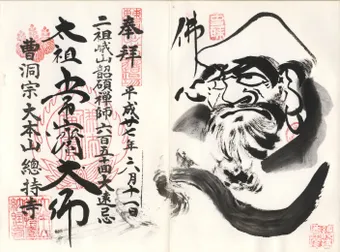 佛心
奉拜
平成廿七年二月十一日
二祖峨山韶碩禅師六百五十回大遠忌
太祖常濟大師
曹洞宗大本山總持寺